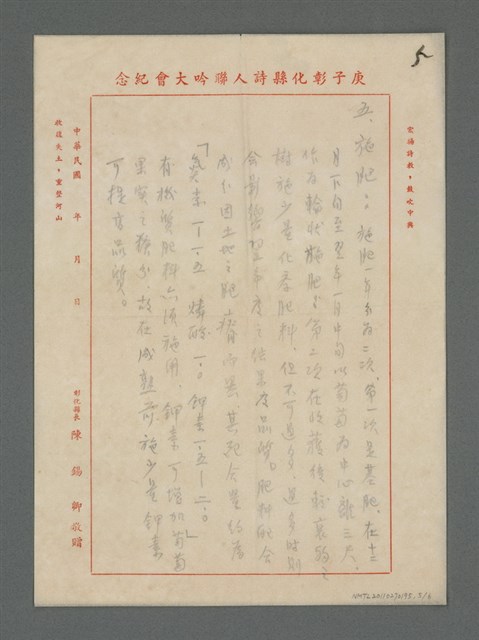 5
庚子彰化縣詩人聯吟大會紀念
宣揚詩教，鼓吹中興
五、施肥：施肥一年分為二次，第一次是基肥，在十二
月下旬至翌年一月中旬以葡萄為中心離三尺，
作為輪狀施肥，第二次在收穫後
樹施少量化學肥料，但不可過多，過多時則
會影響翌年度之結果及品質。肥料配合
成分因土地之肥瘠而異，其配合量約為
「氮素一—一.五 燐酸一.〇 鉀素一.五—二.〇」
有機質肥料亦須施用，鉀素可增加葡萄
果實之糖分，故在成熟前施少量鉀素
可提高品質。
中華民國 年 月 日
彰化縣長 陳錫卿敬贈
收復失土，重整河山
NMTL20110270195 5/6